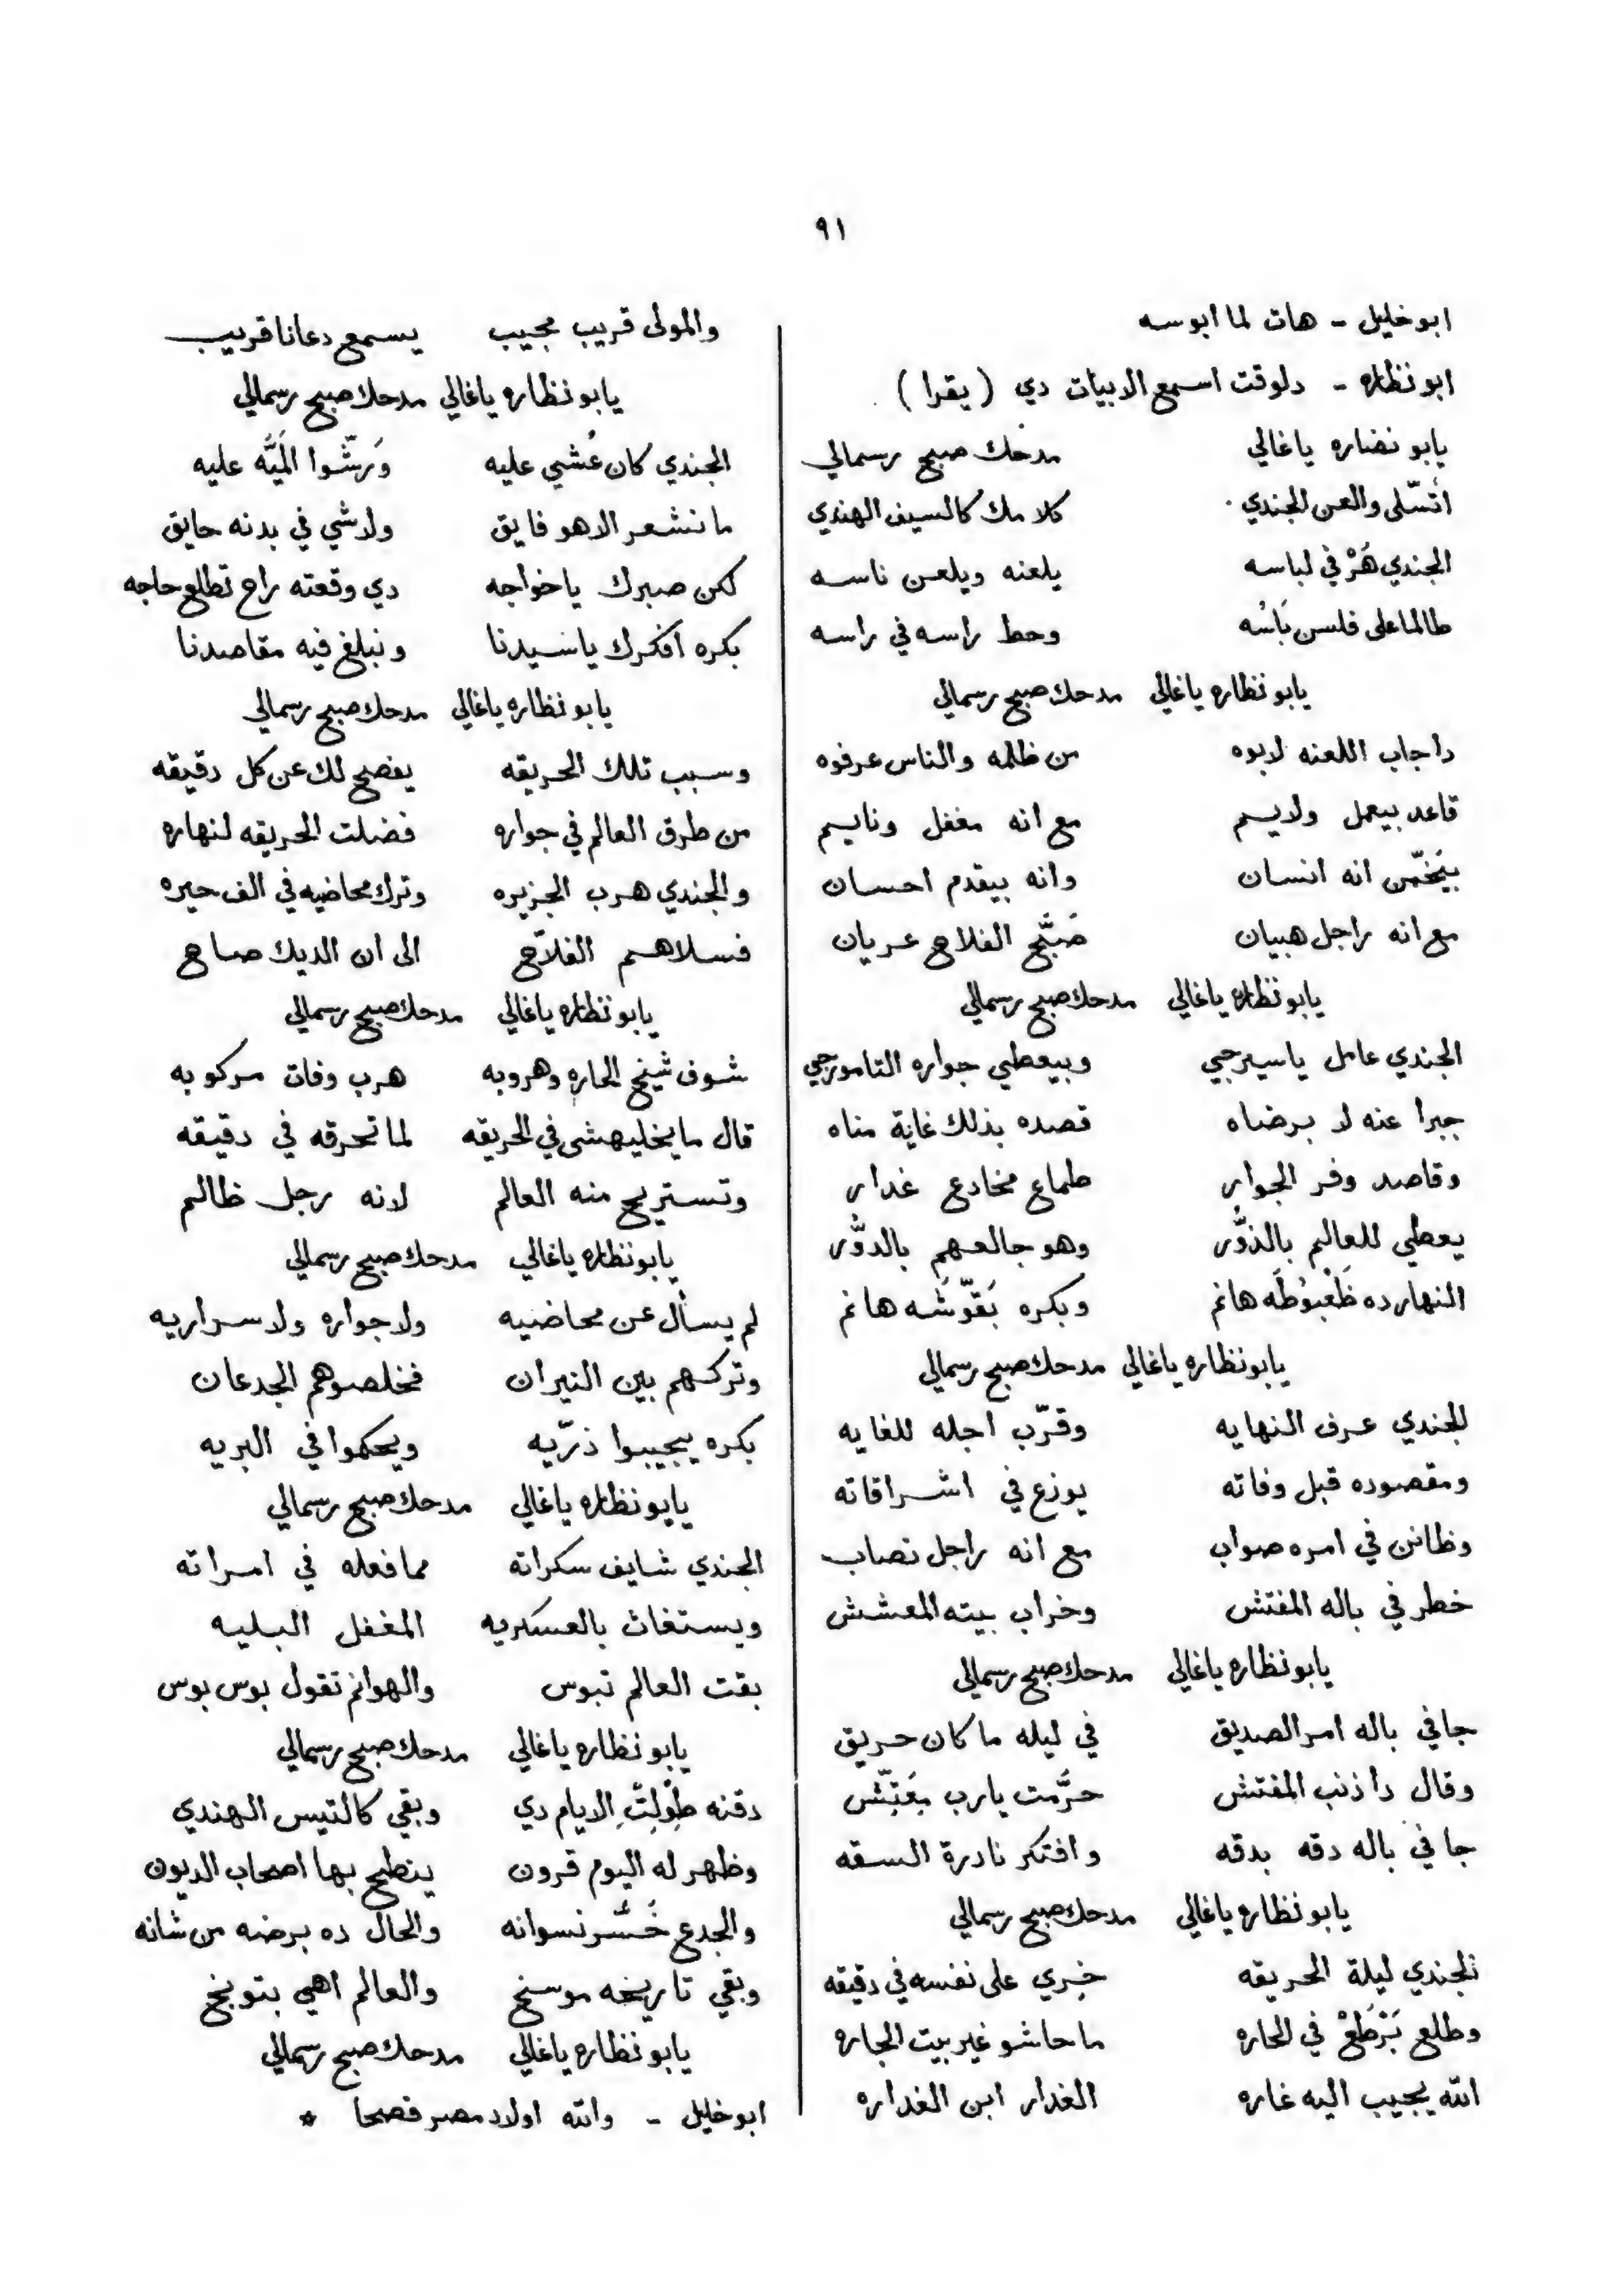 ٩١
ابو خليل - هات لما ابوسه
ابو نظاره - دلوقت اسمع الابيات دي (يقرا)
يابو نضاره ياغالي مدحك صبح رسمالي
أتسّلى والعن الجندي كلامك كالسيف الهندي
الجندي هَرْ في لباسه يلعنه ويلعن ناسه
طالما على فلسن بَاسُه وحط راسه في راسه
يابو نظاره ياغالي مدحك صبح رسمالي
دا جاب اللعنه لابوه من ظلمه والناس عرفوه
قاعد بيعمل ولايم مع انه مغفل ونايم
بيَخمّن انه انسان وانه بيقدم احسان
مع انه راجل هبيان صَبَّح الفلاح عريان
يابو نظاره ياغالي مدحك صبح رسمالي
الجندي عامل ياسيرجي وبيعطي جواره التامورجي
جبرا عنه لا برضاه قصده بذلك غاية مناه
وقاصد وفر الجوار طماع مخادع غدار
يعطي للعالم بالذوُّر وهو جالعهم بالدوُّر
النهارده ظَعْبُوطَه هانم وبكره بَقّوشَه هانم
يابو نظاره ياغالي مدحك صبح رسمالي
الجندي عرف النهايه وقرّب اجله للغايه
ومقصوده قبل وفاته يوزع في اشراقاته
وظانن في امره صواب مع انه راجل نصاب
خطر في باله المفتش وخراب بيته المعشش
يابو نظاره ياغالي مدحك صبح رسمالي
جا في باله امر الصديق في ليله ما كان حريق
وقال دا ذنب المفتش حرَّمت يارب بَعَتِّش
جا في باله دقه بدقه وافتكر نادرة السقه
يابو نظاره ياغالي مدحك صبح رسمالي
الجندي ليلة الحريقه خِري على نفسه في دقيقه
وطلع بَرْطَعْ في الحاره ما حاشو غير بيت الجاره
الله يجيب اليه غاره الغدار ابن الغداره
والمولى قريب مجيب يسمع دعانا قريب
يابو نظاره ياغالي مدحك صبح رسمالي
الجندي كان غُشي عليه وَرشّوا المَيَّه عليه
ما نشعر الا هو فايق ولا شي في بدنه حايق
لكن صبرك ياخواجه دي وقعته راح تطلع حاجه
بكره افكرك ياسيدنا ونبلغ فيه مقاصدنا
يابو نظاره ياغالي مدحك صبح رسمالي
وسبب تلك الحريقه يفصح لك عن كل دقيقه
من طرق العالم في جواره فضلت الحريقه لنهاره
والجندي هرب الجزيره وترك محاضيه في الف حيره
فسلاهم الفلاّح الى ان الديك صاح
يابو نظاره ياغالي مدحك صبح رسمالي
شوف شيخ الحاره وهروبه هرب وفات مركوبه
قال ما يخليهشى في الحريقه لما تحرقه في دقيقه
وتستريح منه العالم لانه رجل ظالم
يابو نظاره ياغالي مدحك صبح رسمالي
لم يسأل عن محاضيه ولا جواره ولا سراريه
وتركهم بين النيران فخلصوهم الجدعان
بكره يجيبوا ذرّيه ويحكموا في البريه
يابو نظاره ياغالي مدحك صبح رسمالي
الجندي شايف سكراته مما فعله في امراته
ويستغاث بالعسكريه المغفل البليه
بقت العالم تبوس والهوانم تقول بوس بوس
يابو نظاره ياغالي مدحك صبح رسمالي
دقنه طْوِلِتْ الايام دي وبقي كالتيس الهندي
وظهر له اليوم قرون ينطح بها اصحاب الديون
والجدع خَسَّر نسوانه والحال ده برضه من شانه
وبقي تاريخه موسخ والعالم اهي بتوبخ
يابو نظاره ياغالي مدحك صبح رسمالي
ابو خليل - والله اولاد مصر فصحا *